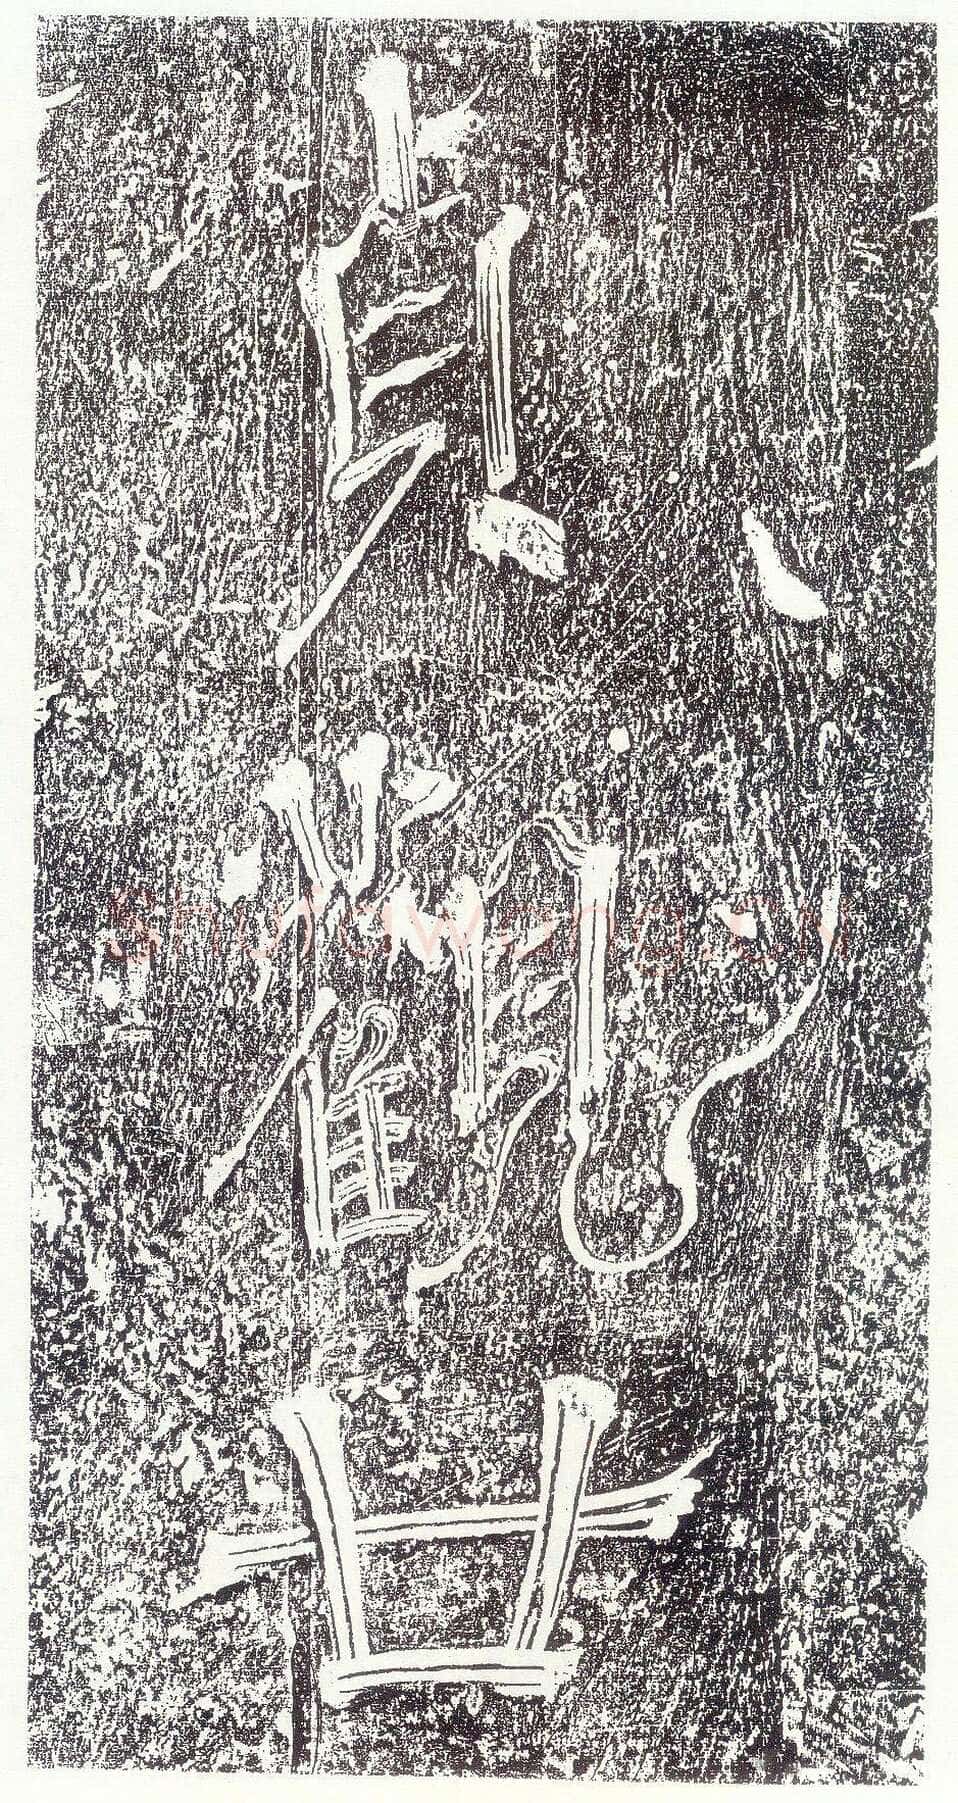 貞觀廿
Shufawang.CN